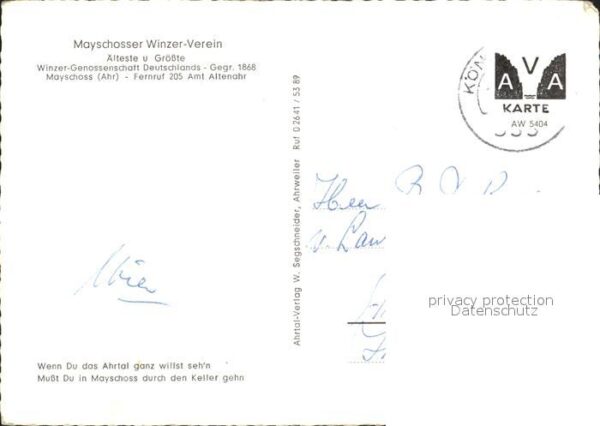 Mayschosser Winzer-Verein
Älteste u Größte
Winzer-Genossenschaft Deutschlands - Gegr. 1868
Mayschoss (Ahr) - Fernruf 205 Amt Altenahr
Wenn Du das Ahrtal ganz willst seh'n
Mußt Du in Mayschoss durch den Keller gehn
Ahrtal-Verlag W. Segschneider, Ahrweiler Ruf 0 26 41 / 53 89
KÖN
AVA
KARTE
AW 5404
Herrn
privacy protection
Datenschutz